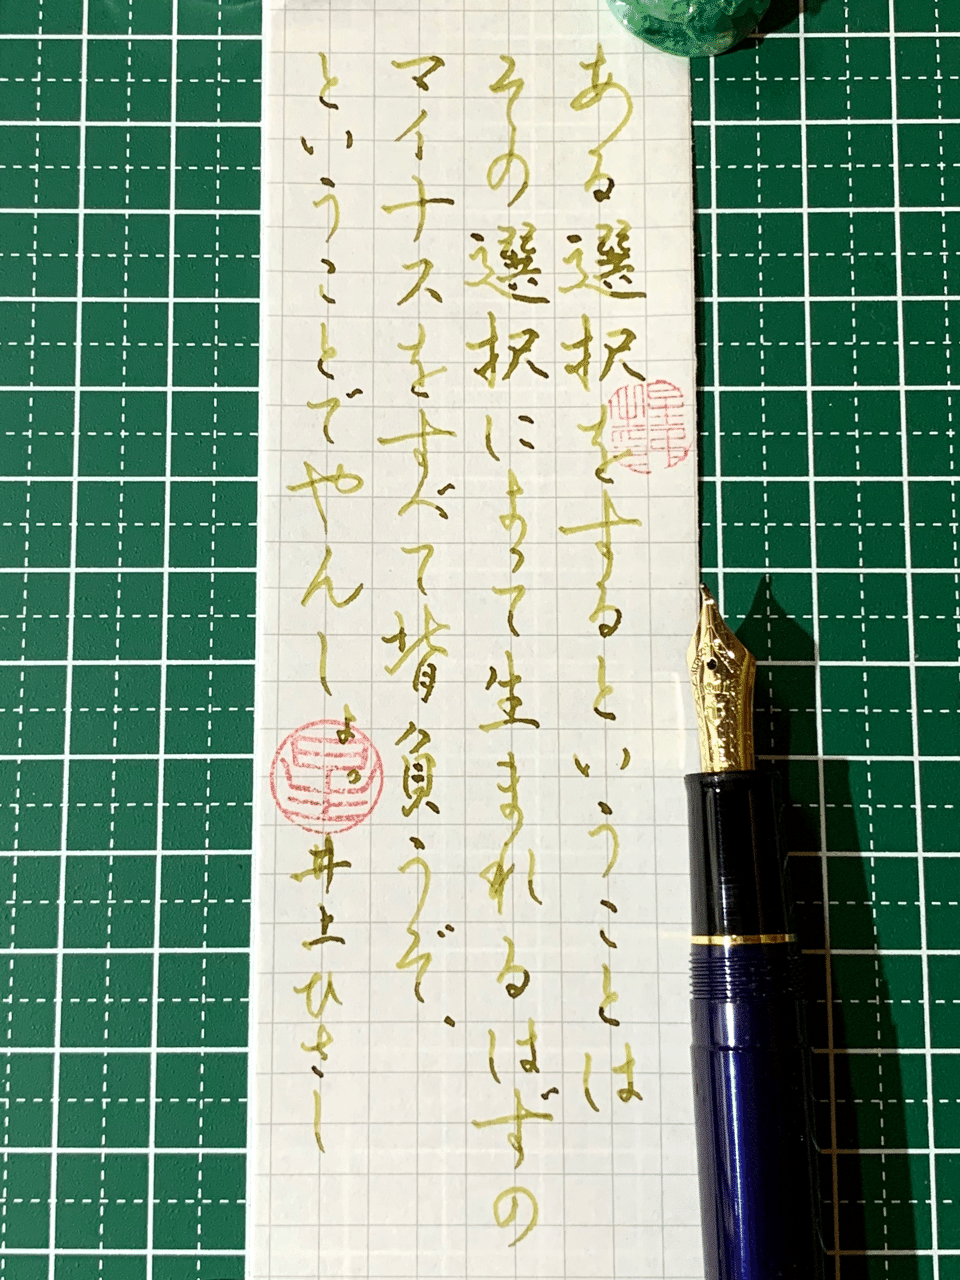 ある選択をするということは
その選択によって生まれるはずの
マイナスをすべて背負うぞ、
ということでやんしょ。
井上ひさし